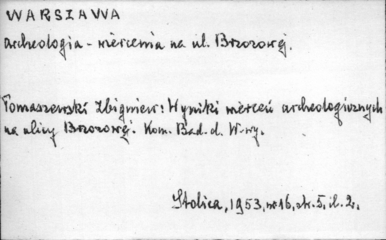 WARSZAWA
Archeologia - wiercenia na ul. Brzozowej.
Tomaszewski Zbigniew: Wyniki wierceń archeologicznych
na ulicy Brzozowej. Kom. Bad. d. W-wy.
Stolica, 1953, nr 16, str. 5, il. 2.